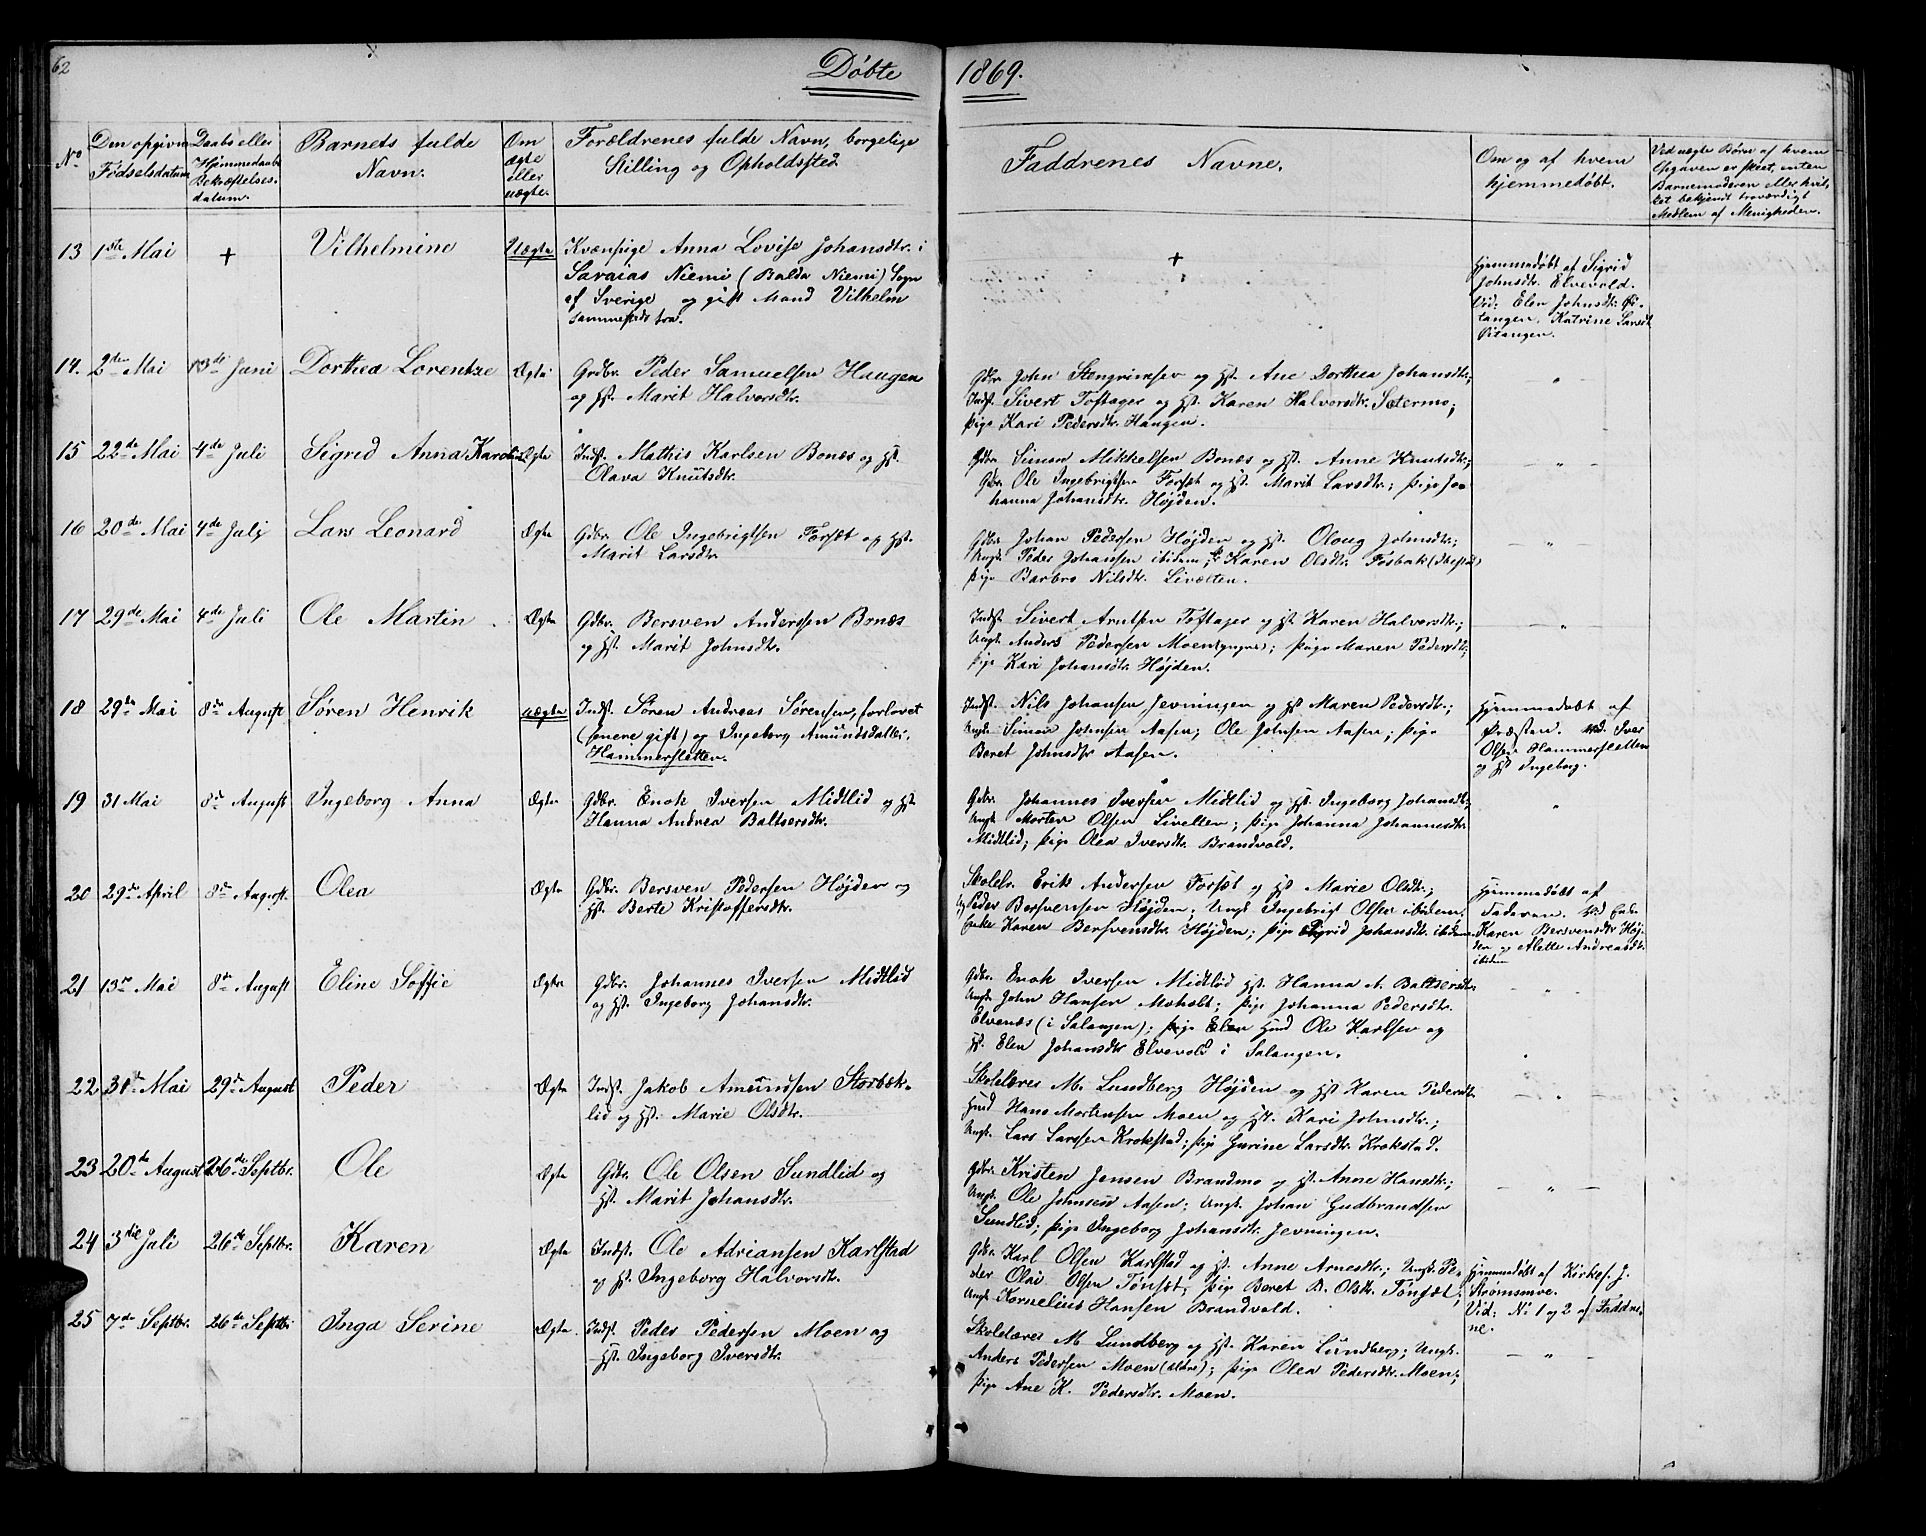 62
Døbte 1869.
No
Den opgivne Fødselsdatum
Daabs eller Hjemmedaabs Bekræftelses-datum.
Barnets fulde Navn.
Om ægte eller uægte.
Forældrenes fulde Navn, borgelige Stilling og Opholdssted.
Faddrenes Navne.
Om og af hvem hjemmedøbt.
Ved uægte Børn af hvem Opgaven er skeet, enten Barnemoderen eller hvilket bekjendt troværdigt Medlem af Menigheden.
13 1ste Mai + Vilhelmine Uægte Kvænpige Anna Lovise Johansdtr. i
Saraias Niemi (Balda Niemi) Sogn
af Sverige og gift Mand Vilhelm
sammesteds fra.
+
Hjemmedøbt af Sigrid
Johnsdtr. Elvevold.
Vid: Elen Johnsdtr.
Katrine Larsdt
14. 2den Mai 13de Juni Dorthea Lorentze Ægte Grdbr. Peder Samuelsen Haugen
og Hst. Marit Halvorsdtr.
Gdbr. John Stengrimsen og Hst. Ane Dorthea Johansdtr.;
Indst. Sivert Toftager og Hst. Karen Halvorsdtr. Sætermo;
Pige Kari Pedersdtr. Haugen.
— " —
15 22de Mai 4de Juli Sigrid Anna Karoline Ægte Indst. Mathis Karlsen Bonæs og Hst.
Olava Knutsdtr.
Gdbr. Simon Mikkelsen Bonæs og Hst. Anne Knutsdtr.;
Gdbr. Ole Ingebrigtsen Forsæt og Hst. Marit Larsdtr.; Pige Jo-
hanna Johansdtr. Højden.
— " —
16 20de Mai 4de July Lars Leonard Ægte Gdbr. Ole Ingebrigtsen Forsæt og Hst.
Marit Larsdtr.
Gdbr. Johan Pedersen Højden og Hst. Oloug Johnsdtr.;
Ungk. Peder Johansen ibidem; Karen Olsdtr. Fosbak (Ibestad)
Pige Barbro Nilsdtr. Livælten.
— " —
17 29de Mai 4de Juli Ole Martin Ægte Gdbr. Bersven Anderssen Bonæs
og Hst. Marit Johnsdtr.
Indst. Sivert Arntsen Toftager og Hst Karen Halvorsdtr.;
Ungk. Anders Pedersen Moen (yngre); Pige Maren Pedersdtr;
Pige Kari Johansdtr. Højden.
— " —
18 29de Mai 8de August Søren Henrik uægte Indst. Søren Andreas Sørensen, forlovet
(senere gift) og Ingeborg Amundsdatter.
Hammersletten.
Indst. Nils Johansen Jevningen og Hst Maren Pedersdtr.;
Ungk. Simon Johnsen Aasen; Ole Johnsen Aasen; Pige
Beret Johnsdtr Aasen.
Hjemmedøbt af
Præsten. Vid. Iver
Olsen Hammersletten
og Hst Ingeborg.
19 31 Mai 8de August Ingeborg Anna Ægte Gdbr. Enok Iversen Midtlid og Hst
Hanna Andrea Baltsersdtr.
Gdbr. Johannes Iversen Midtlid og Hst. Ingeborg Johansdt;
Ungk. Morten Olsen Livelten; Pige Johanna Johannesdtr.
Midtlid; Pige Olea Iversdtr. Brandvold.
"
20 29de April 8de August. Olea Ægte Gdbr. Bersven Pedersen Højden og
Hst. Berte Kristoffersdtr.
Skolelr. Erik Andersen Forsæt og Hst Marie Olsdtr.;
Peder Bersvensen Højden; Ungk. Ingebrigt Olsen ibidem.
Enke Karen Bersvensdtr. Højden; Pige Sigrid Johansdtr. ibidem.
Hjemmedøbt af
Faderen. Vid Enke
Karen Bersvensdtr Høj-
den og Alette Andreasdtr.
ibidem
21 13de Mai 8de August Eline Soffie Ægte Gdbr. Johannes Iversen Midtlid
og Hst. Ingeborg Johansdtr.
Gdbr. Enok Iversen Midtlid Hst. Hanna A. Baltsersdtr.
Ungk. John Hansen Moholt; Pige Johanna Pedersdtr.
Elvenæs (i Salangen); Pige Elen Husd Ole Karlsen og
Hst. Elen Johansdtr Elvevold i Salangen.
— " —
22 31te Mai 29de August Peder Ægte Indst. Jakob Amundsen Storbæk-
lid og Hst. Marie Olsdtr.
Skolelærer M. Lundberg Højden og Hst Karen Pedersdtr.
Husd Hans Mortensen Moen og Hst. Kari Johnsdtr.;
Ungk. Lars Larssen Krokstad; Pige Gurine Larsdtr. Krokstad.
— " —
23 20de August 26de Septbr. Ole Ægte Gdbr. Ole Olsen Sundlid og
Hst. Marit Johansdtr.
Gdbr. Kristen Jensen Brandmo og Hst. Anne Hansdtr.;
Ungk. Ole Johnsen Aasen; Ungk. Johan Gudbrandsen
Sundlid; Pige Ingeborg Johansdtr. Jevningen.
— " —
24 3die Juli 26de Septbr. Karen Ægte Indst. Ole Adriansen Karlstad
og Hst. Ingeborg Halvorsdtr.
Gdbr. Karl Olsen Karlstad og Hst. Anne Arnesdtr.; Ungk. Pe-
der Olai Olsen Tønsæt; Pige Beret B. Olsdtr. Tønsæt;
Ungk Kornelius Hansen Brandvold.
Hjemmedøbt af Kirkes. J.
Strømsmoe.
Vid: No 1 og 2 af Faddre-
ne.
25 7de Septbr. 26de Septbr Inga Serine Ægte. Indst. Peder Pedersen Moen og
Hst. Ingeborg Iversdtr.
Skolelærer M. Lundberg og Hst. Karen Lundberg; Ungk.
Anders Pedersen Moen (ældre); Pige Olea Pedersdtr. Moen;
Pige Ane K. Pedersdtr. Moen.
— " —